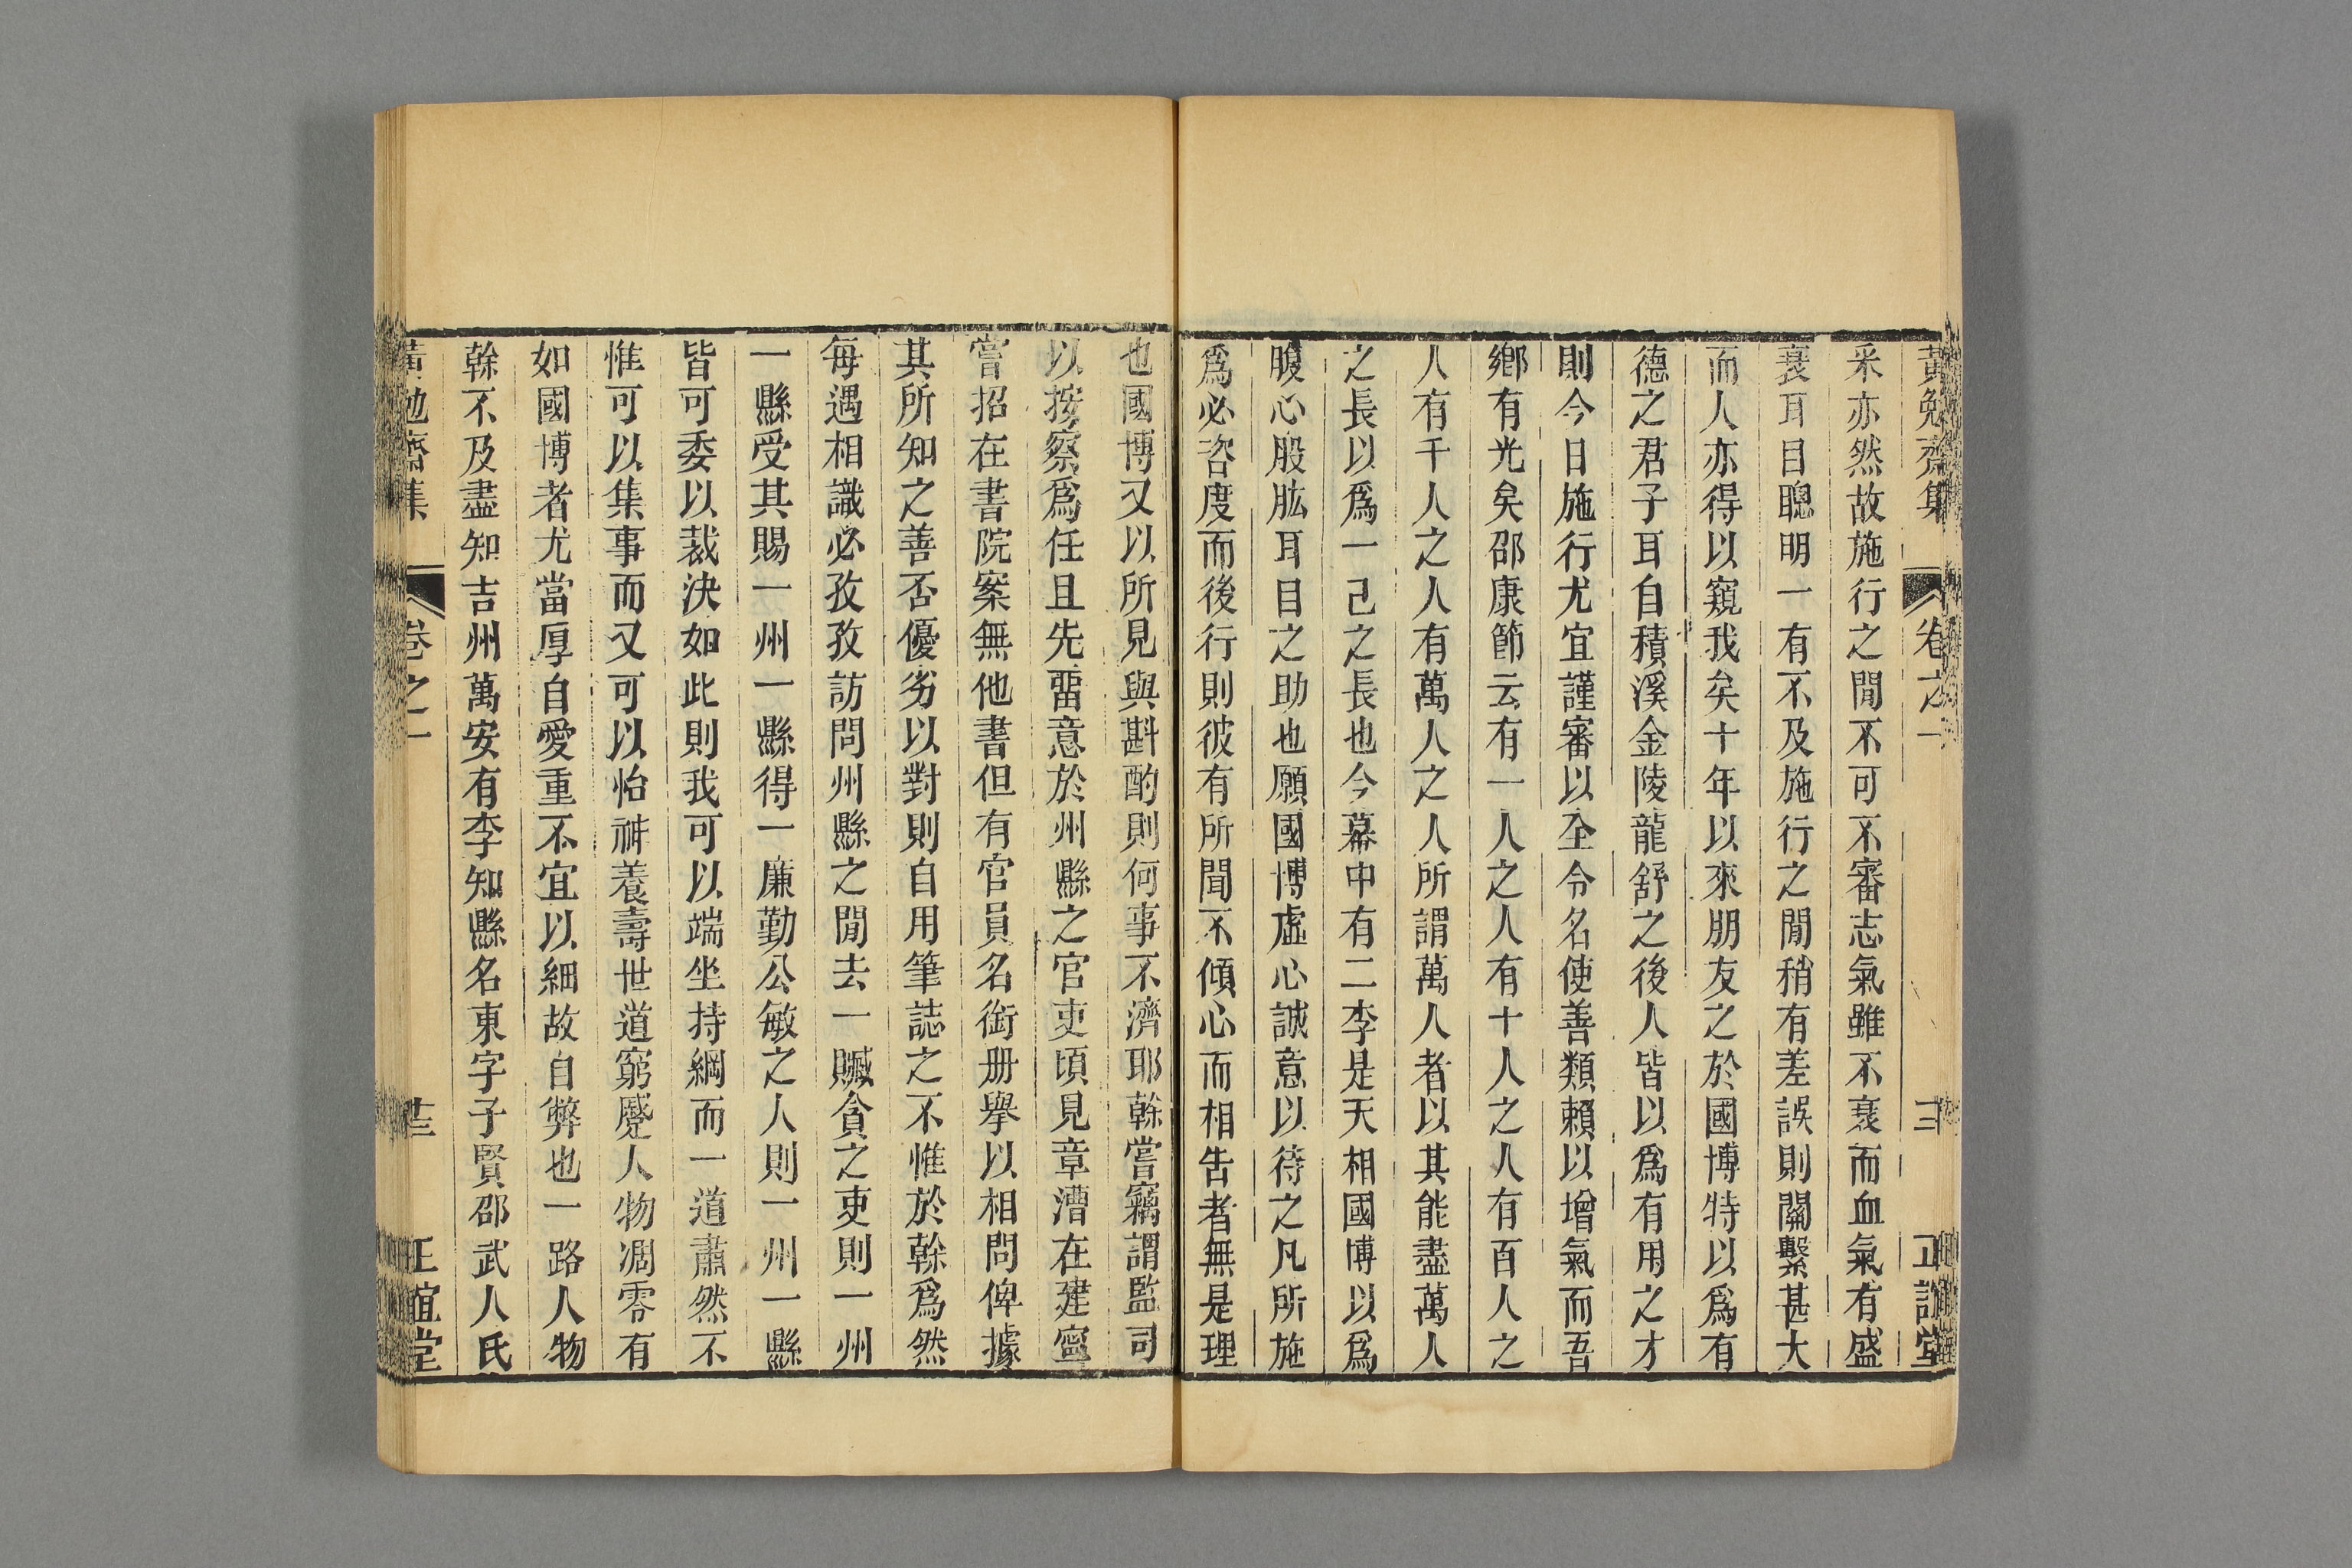 黃勉齋集 卷之一 三 正誼堂
采亦然故施行之閒不可不審志氣雖不衰而血氣有盛
衰耳目聰明一有不及施行之閒稍有差誤則關繫甚大
而人亦得以窺我矣十年以來朋友之於國博特以爲有
德之君子耳自積溪金陵龍舒之後人皆以爲有用之才
則今日施行尤宜謹審以全令名使善類賴以增氣而吾
鄉有光矣邵康節云有一人之人有十人之人有百人之
人有千人之人有萬人之人所謂萬人者以其能盡萬人
之長以爲一己之長也今幕中有二李是天相國博以爲
腹心股肱耳目之助也願國博虛心誠意以待之凡所施
爲必咨度而後行則彼有所聞不傾心而相告者無是理
也國博又以所見與斟酌則何事不濟耶榦嘗竊謂監司
以按察爲任且先畱意於州縣之官吏頃見章漕在建寧
嘗招在書院案無他書但有官員名銜册舉以相問俾據
其所知之善否優劣以對則自用筆誌之不惟於榦爲然
每遇相識必孜孜訪問州縣之閒去一贓貪之吏則一州
一縣受其賜一州一縣得一廉勤公敏之人則一州一縣
皆可委以裁決如此則我可以端坐持綱而一道肅然不
惟可以集事而又可以怡神養壽世道窮蹙人物凋零有
如國博者尤當厚自愛重不宜以細故自弊也一路人物
榦不及盡知吉州萬安有李知縣名東字子賢邵武人氏
黃勉齋集 卷之一 十三 正誼堂